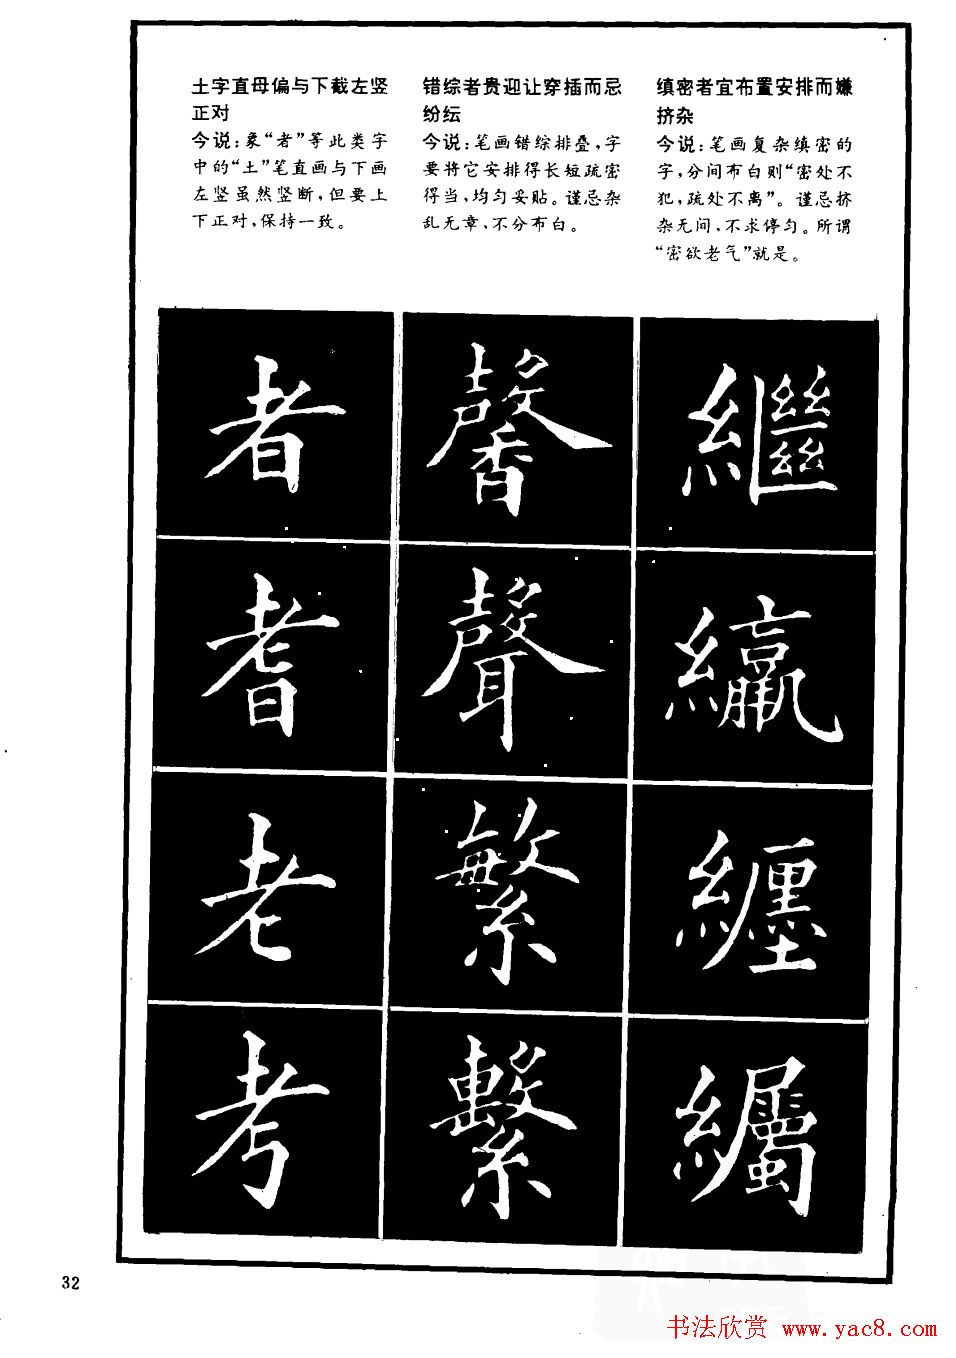 土字直母偏与下截左竖
正对
今说:象“老”等此类字
中的“土”笔直画与下画
左竖虽然竖断,但要上
下正对,保持一致。
错综者贵迎让穿插而忌
纷纭
今说:笔画错综排叠,字
要将它安排得长短疏密
得当,均匀妥贴。谨忌杂
乱无章,不分布白。
缜密者宜布置安排而嫌
挤杂
今说:笔画复杂缜密的
字,分间布白则“密处不
犯,疏处不离”。谨忌挤
杂无间,不求停匀。所谓
“密欲老气”就是。
者
耆
老
考
馨
聲
繁
繫
繼
纗
纏
钃
32
书法欣赏 www.yac8.com